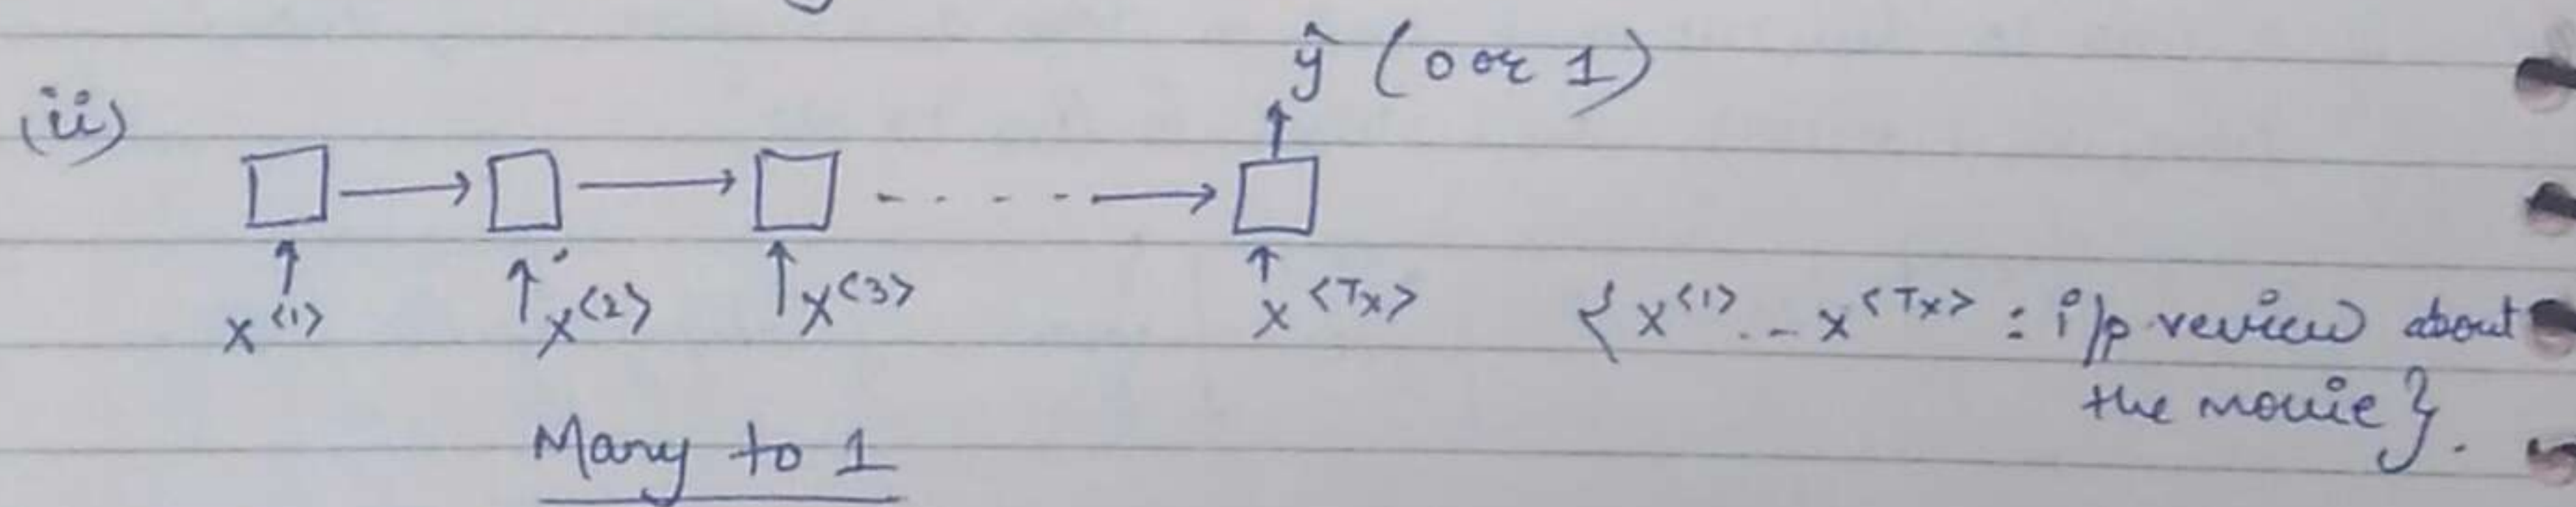 ŷ (0 or 1)
(ii)
x<1> x<2> x<3> x<Tx> {x<1>..-x<Tx> : i/p review about
the movie}.
Many to 1